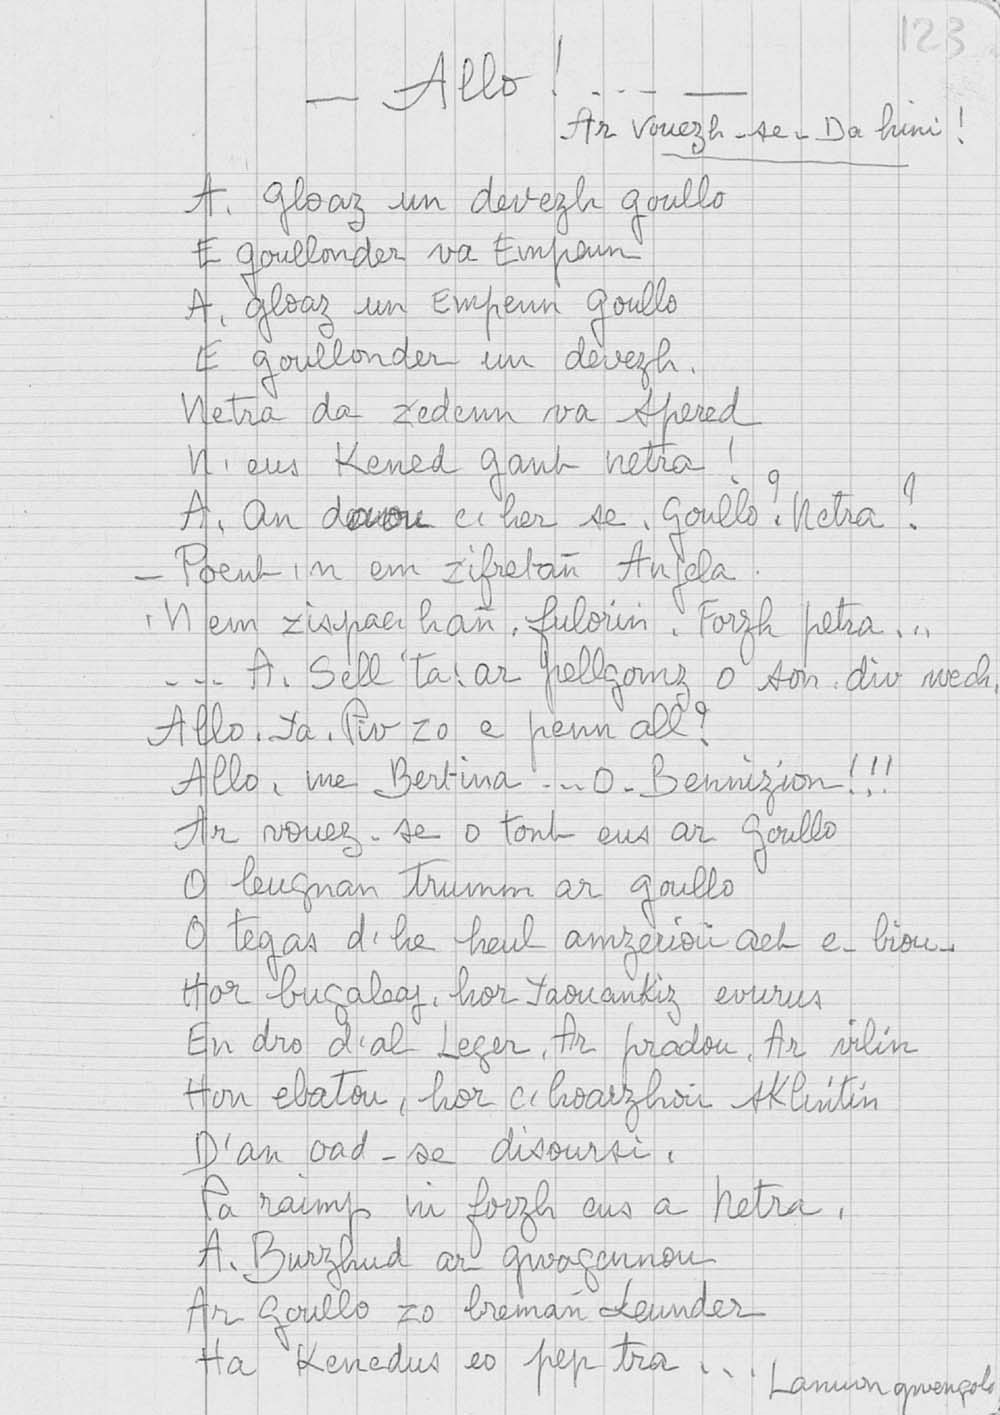 123
— Allo ! ... —
Ar Vouezh-se- Da hini !
A, gloaz un devezh goullo
E goullonder va Empenn
A, gloaz un Empenn goullo
E goullonder un devezh.
Netra da zedenn va spered
N'eus Kened gant netra !
A, An c'her se, Goullo? Netra ?
— Poent 'n em zifretañ Anjela.
'N em zispac'hañ, fulorin, Forzh petra...
--- A, Sell 'ta! ar pellgomz o son, div wech,
Allo, Ya, Piv zo e penn all?
Allo, me Bertina ... O- Bennizion!!!
Ar vouez-se o tont eus ar Goullo
O leugnan trumm ar goullo
O tegas d'he heul amzerioù aet e-biou-
Hor bugaleaj, hor Yaouankiz evurus
En dro d'al Leger, Ar pradou, Ar vilin
Hon ebatou, hor c'hoarzhoù sklintin
D'an oad-se disoursi,
Pa raimp ni forzh eus a Netra,
A, Burzhud ar gwagennou
Ar Goullo zo bremañ Leunder
Ha Kenedus eo pep tra ...
Lannuon gwengolo